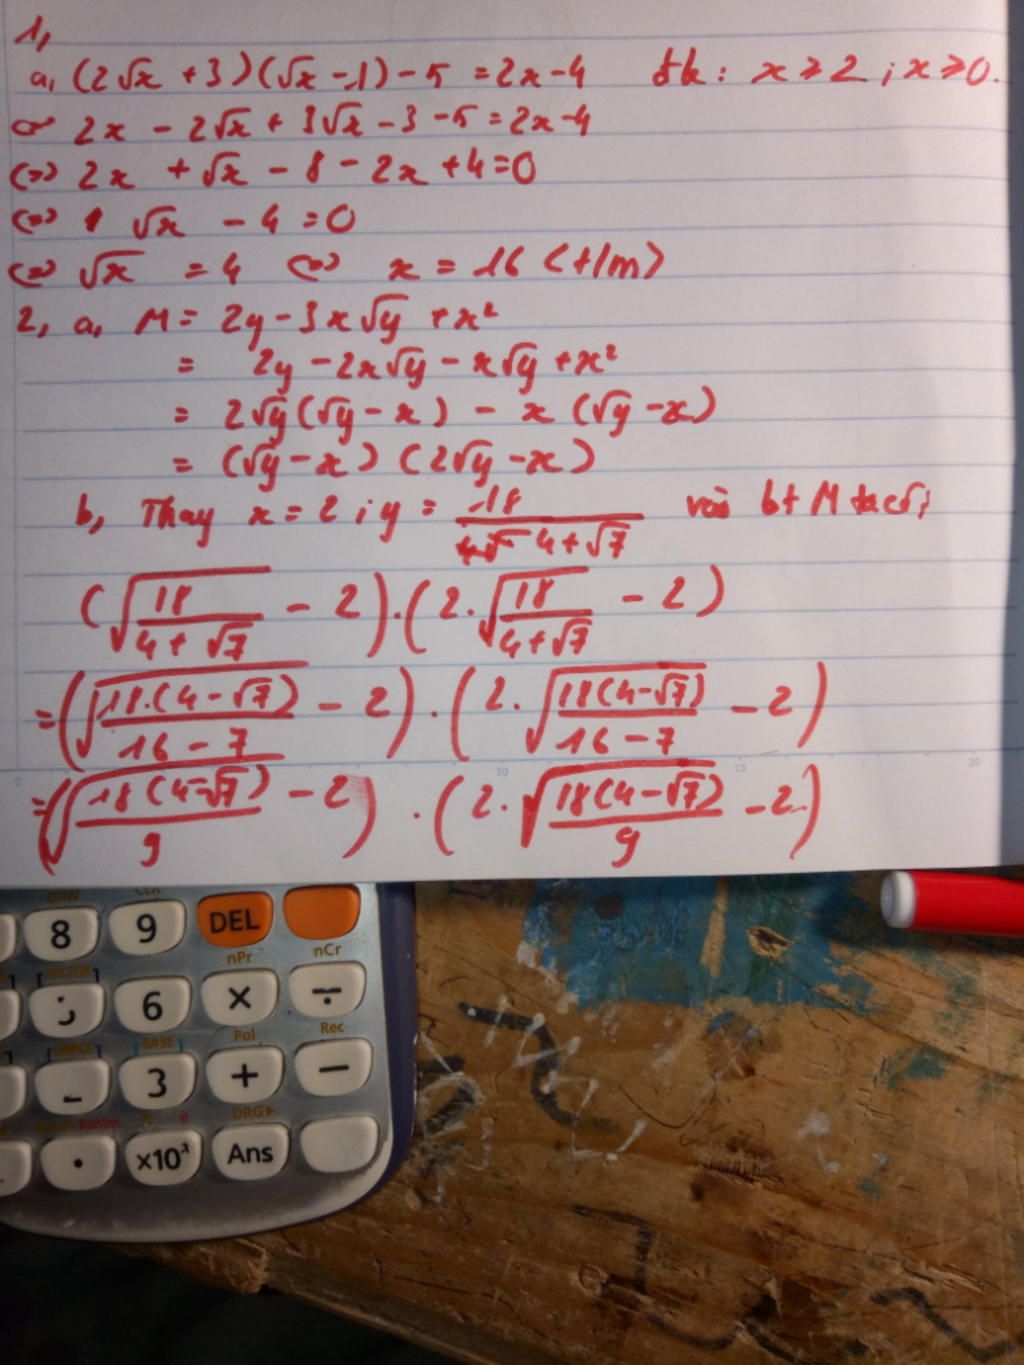 1,
a, (2√x + 3)(√x - 1) - 5 = 2x - 4 đk: x ≥ 2 ; x ≥ 0.
<=> 2x - 2√x + 3√x - 3 - 5 = 2x - 4
<=> 2x + √x - 8 - 2x + 4 = 0
<=> √x - 4 = 0
<=> √x = 4 <=> x = 16 (t/m)
2, a, M = 2y - 3x√y + x²
= 2y - 2x√y - x√y + x²
= 2√y(√y - x) - x(√y - x)
= (√y - x)(2√y - x)
b, Thay x = 2 ; y = 18/(4 + √7) vào bt M ta có;
(√(18/(4 + √7)) - 2).(2.√(18/(4 + √7)) - 2)
= (√(18.(4 - √7)/(16 - 7)) - 2) . (2.√(18(4 - √7)/(16 - 7)) - 2)
= (√(18(4 - √7)/9) - 2) . (2.√(18(4 - √7)/9) - 2)
CONV CLR
8 9 DEL
nPr nCr
VECTOR
6 × ÷
BASE Pol Rec
3 + −
Ran# RanInt π e DRG▸
. ×10ˣ Ans